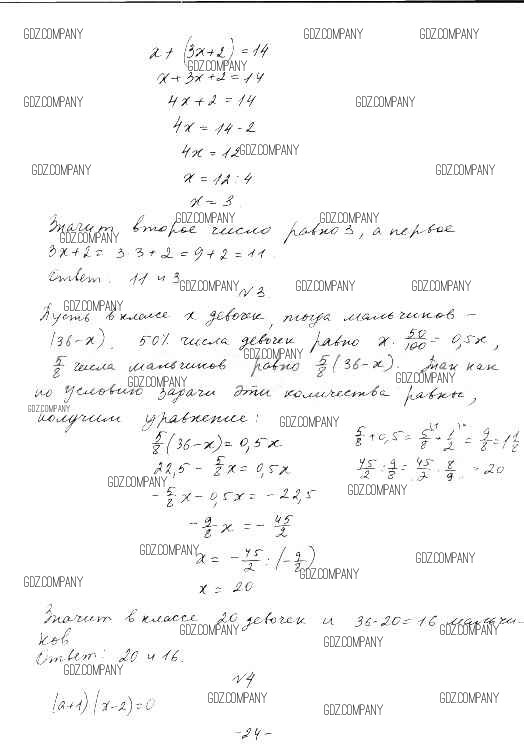 GDZ.COMPANY GDZ.COMPANY GDZ.COMPANY
x + (3x+2) = 14
GDZ.COMPANY
x + 3x + 2 = 14
GDZ.COMPANY 4x + 2 = 14 GDZ.COMPANY
4x = 14 - 2
4x = 12 GDZ.COMPANY
GDZ.COMPANY x = 12 : 4 GDZ.COMPANY
x = 3.
GDZ.COMPANY GDZ.COMPANY
Значит второе число равно 3, а первое
GDZ.COMPANY
3x+2 = 3·3+2 = 9+2 = 11.
Ответ: 11 и 3. GDZ.COMPANY GDZ.COMPANY GDZ.COMPANY
№3.
GDZ.COMPANY
Пусть в классе x девочек, тогда мальчиков –
(36-x). 50% числа девочек равно x · 50/100 = 0,5x,
GDZ.COMPANY
5/8 числа мальчиков равно 5/8 (36-x). Так как
GDZ.COMPANY GDZ.COMPANY
по условию задачи эти количества равны,
GDZ.COMPANY
получим уравнение: GDZ.COMPANY
5/8 (36-x) = 0,5x 5/8 + 0,5 = 5/8 + 1/2 = 9/8 = 1 1/8
22,5 - 5/8 x = 0,5x 45/2 : 9/8 = 45/2 · 8/9 = 20
GDZ.COMPANY GDZ.COMPANY
- 5/8 x - 0,5x = - 22,5
- 9/8 x = - 45/2
GDZ.COMPANY GDZ.COMPANY
x = - 45/2 : (- 9/8)
GDZ.COMPANY GDZ.COMPANY
x = 20
Значит в классе 20 девочек и 36-20=16 мальчи-
GDZ.COMPANY GDZ.COMPANY
ков
GDZ.COMPANY
Ответ: 20 и 16.
GDZ.COMPANY
№4
(a+1)(x-2)=0 GDZ.COMPANY GDZ.COMPANY
GDZ.COMPANY
-24-